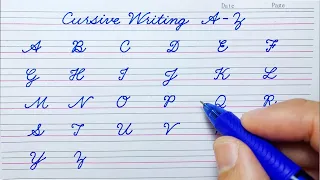 Cursive Writing A-Z
Date Page
A B C D E F
G H I J K L
M N O P Q R
S T U V
Y Z